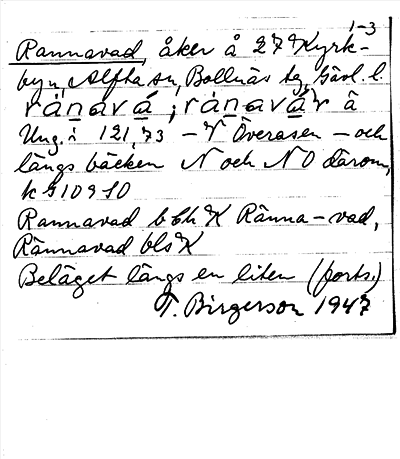 1-3
Rannavad, åker å 27 Kyrk-
byn, Alfta sn, Bollnäs tg, Gävl. l.
ránavá; ránavár å
Ung. i 121,73 - V Överåsen - och
längs bäcken N och NO därom,
k 510910
Rannavad bbh K Ränna-vad,
Rännavad bls K
Beläget längs en liten (forts.)
T. Birgerson 1947